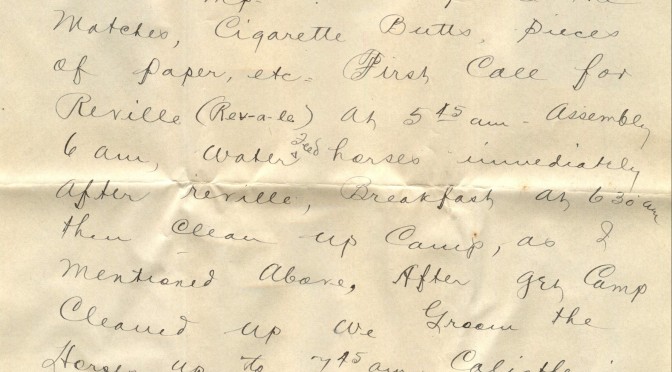 the
Matches, Cigarette Butts, pieces
of paper, etc= First Call for
Reville (Rev-a-le) at 5 45 am - Assembly
6 am, Water & Feed horses immediately
After reville, Breakfast at 6 30 am
then Clean up Camp, as I
Mentioned Above, After get Camp
Cleaned up we Groom the
Horses up to 7 45 am